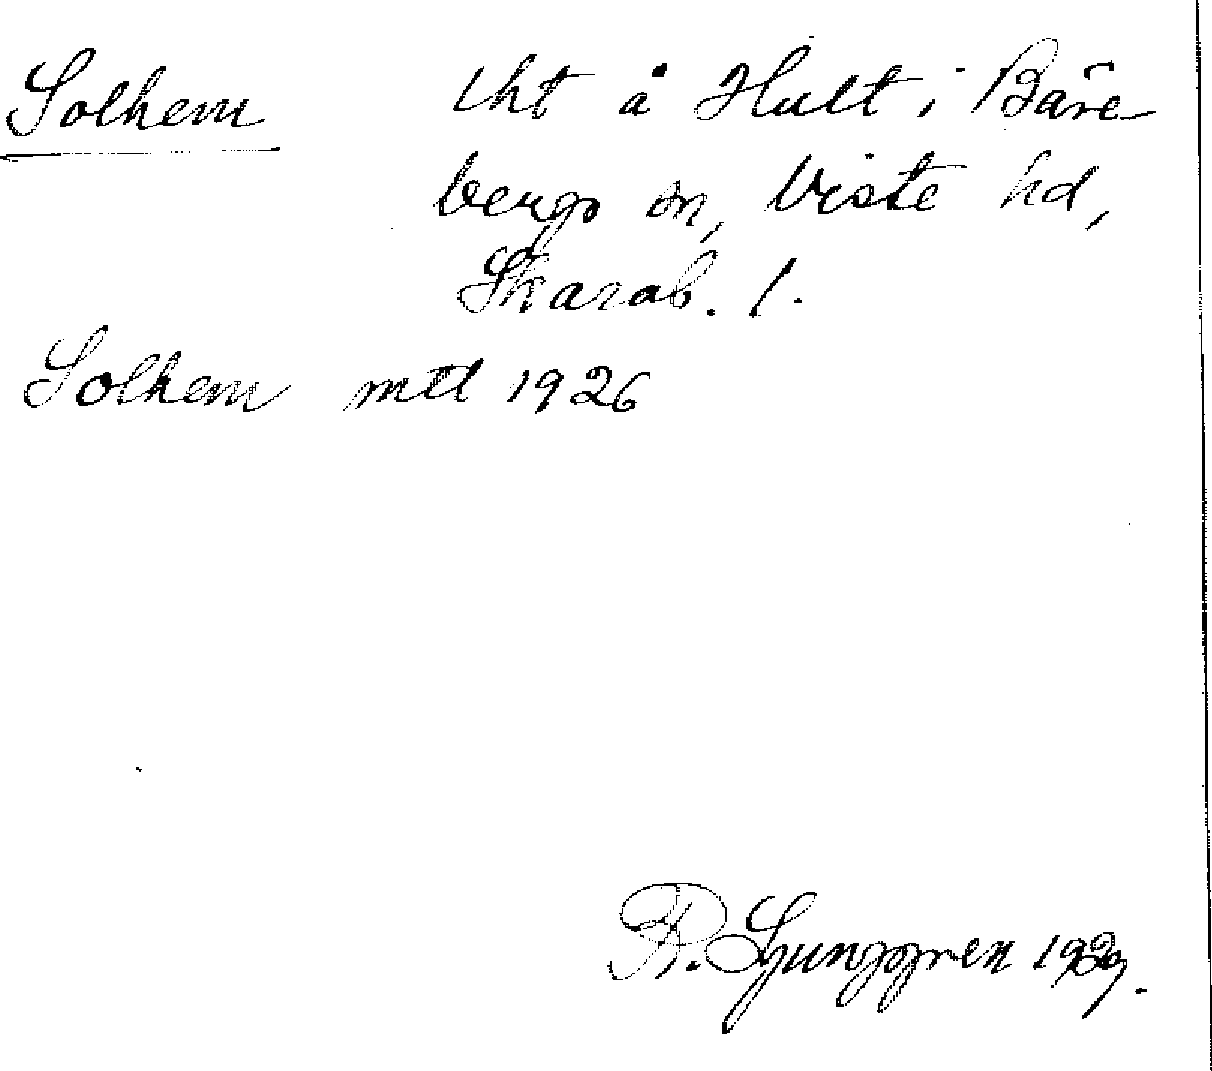 Solhem lht å Hult i Bäre
bergs sn, Viste hd,
Skarab. l.
Solhem mtl 1926
R. Ljunggren 1929.